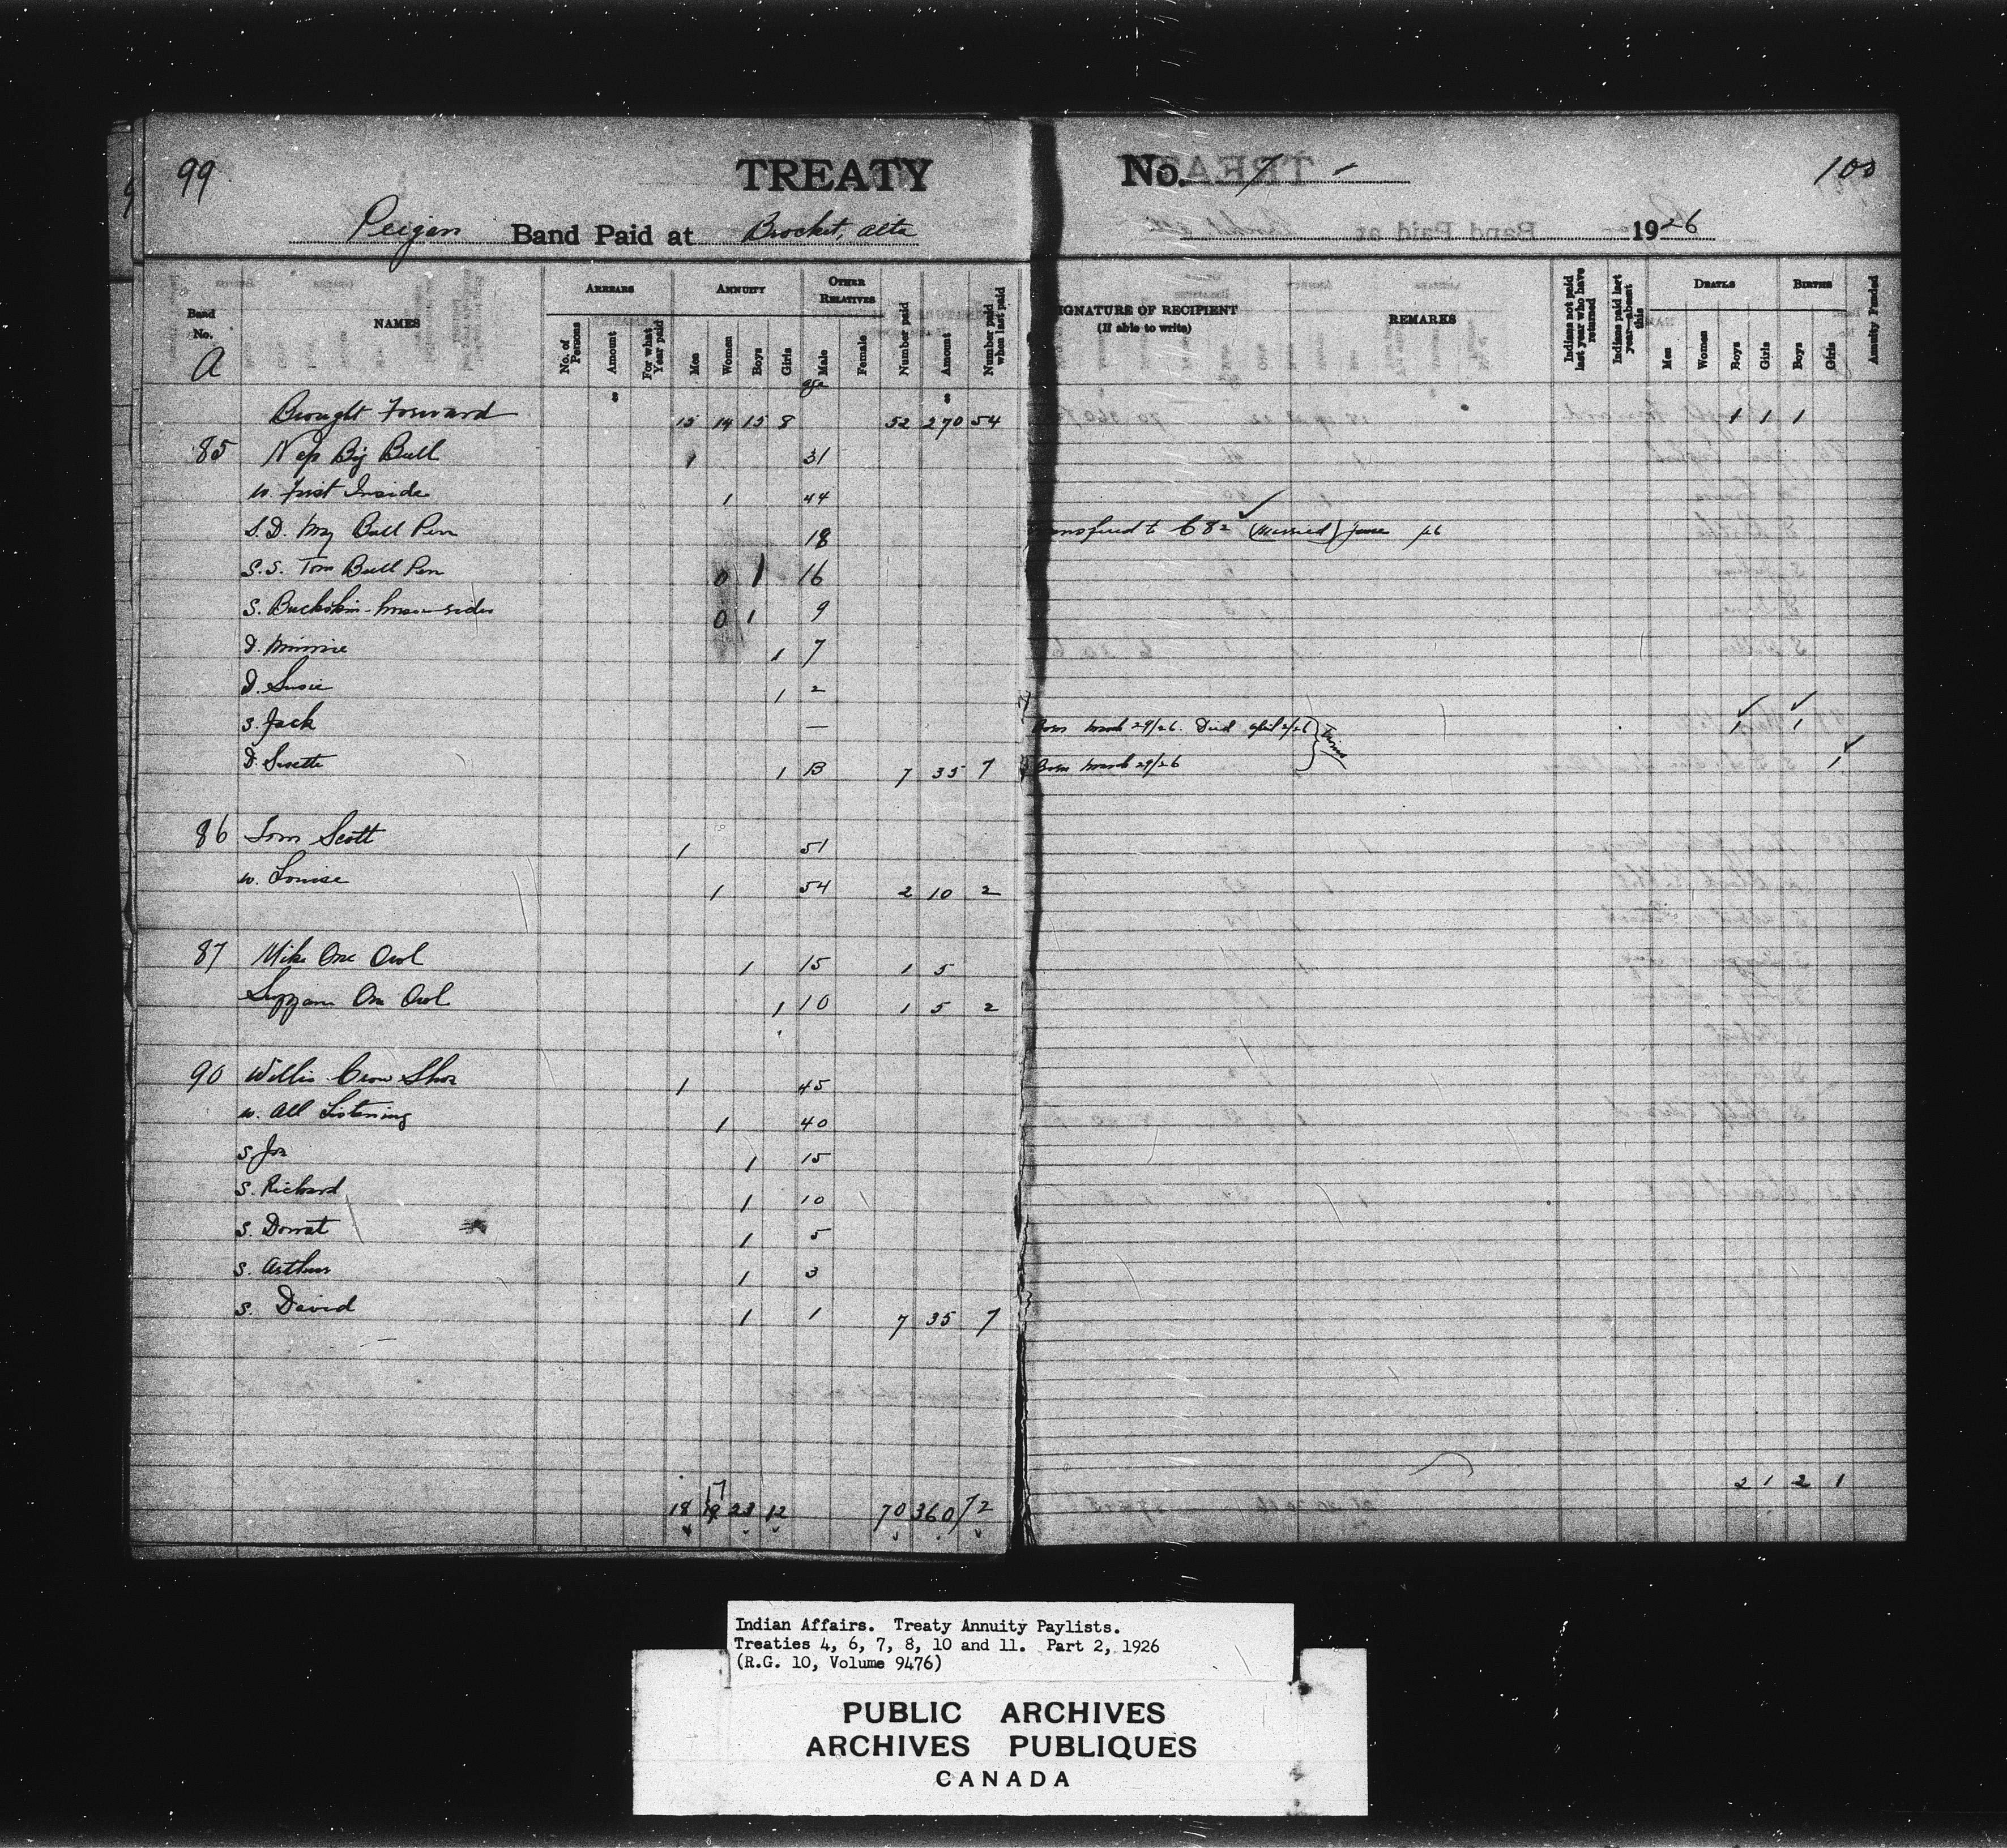 99
TREATY No. 7 -
100
Peigan Band Paid at Brocket, Alta 1926
Band No.
A
NAMES
ARREARS
No. of Persons
Amount
For what Year paid
ANNUITY
Men
Women
Boys
Girls
OTHER RELATIVES
Male
Female
age
Number paid
Amount
Number paid when last paid
SIGNATURE OF RECIPIENT
(If able to write)
REMARKS
Indians not paid last year who have returned
Indians paid last year—absent this
DEATHS
Men
Women
Boys
Girls
BIRTHS
Boys
Girls
Annuity Funded
Brought Forward 15 14 15 8 52 270 54 1 1 1
85 Nap Big Bull 1 31
w. First Inside 1 44
S.D. May Bull Pen 18 Transferred to C 82 (Married) June /26
S.S. Tom Bull Pen 0 1 16
S. Buckskin 0 1 9
D. Minnie 1 7
D. Susie 1 2
S. Jack — Born March 29/26. Died April 2/26 Twins 1 1
D. Susette 1 B 7 35 7 Born March 29/26 1
86 Tom Scott 1 51
w. Louise 1 54 2 10 2
87 Mike One Owl 1 15 1 5
Suzzann One Owl 1 10 1 5 2
90 Willis Crow Shoe 1 45
w. All Listening 1 40
S. Joe 1 15
S. Richard 1 10
S. Donat 1 5
S. Arthur 1 3
S. David 1 1 7 35 7
18 17 23 12 70 360 72 2 1 2 1
Indian Affairs. Treaty Annuity Paylists.
Treaties 4, 6, 7, 8, 10 and 11. Part 2, 1926
(R.G. 10, Volume 9476)
PUBLIC ARCHIVES
ARCHIVES PUBLIQUES
CANADA